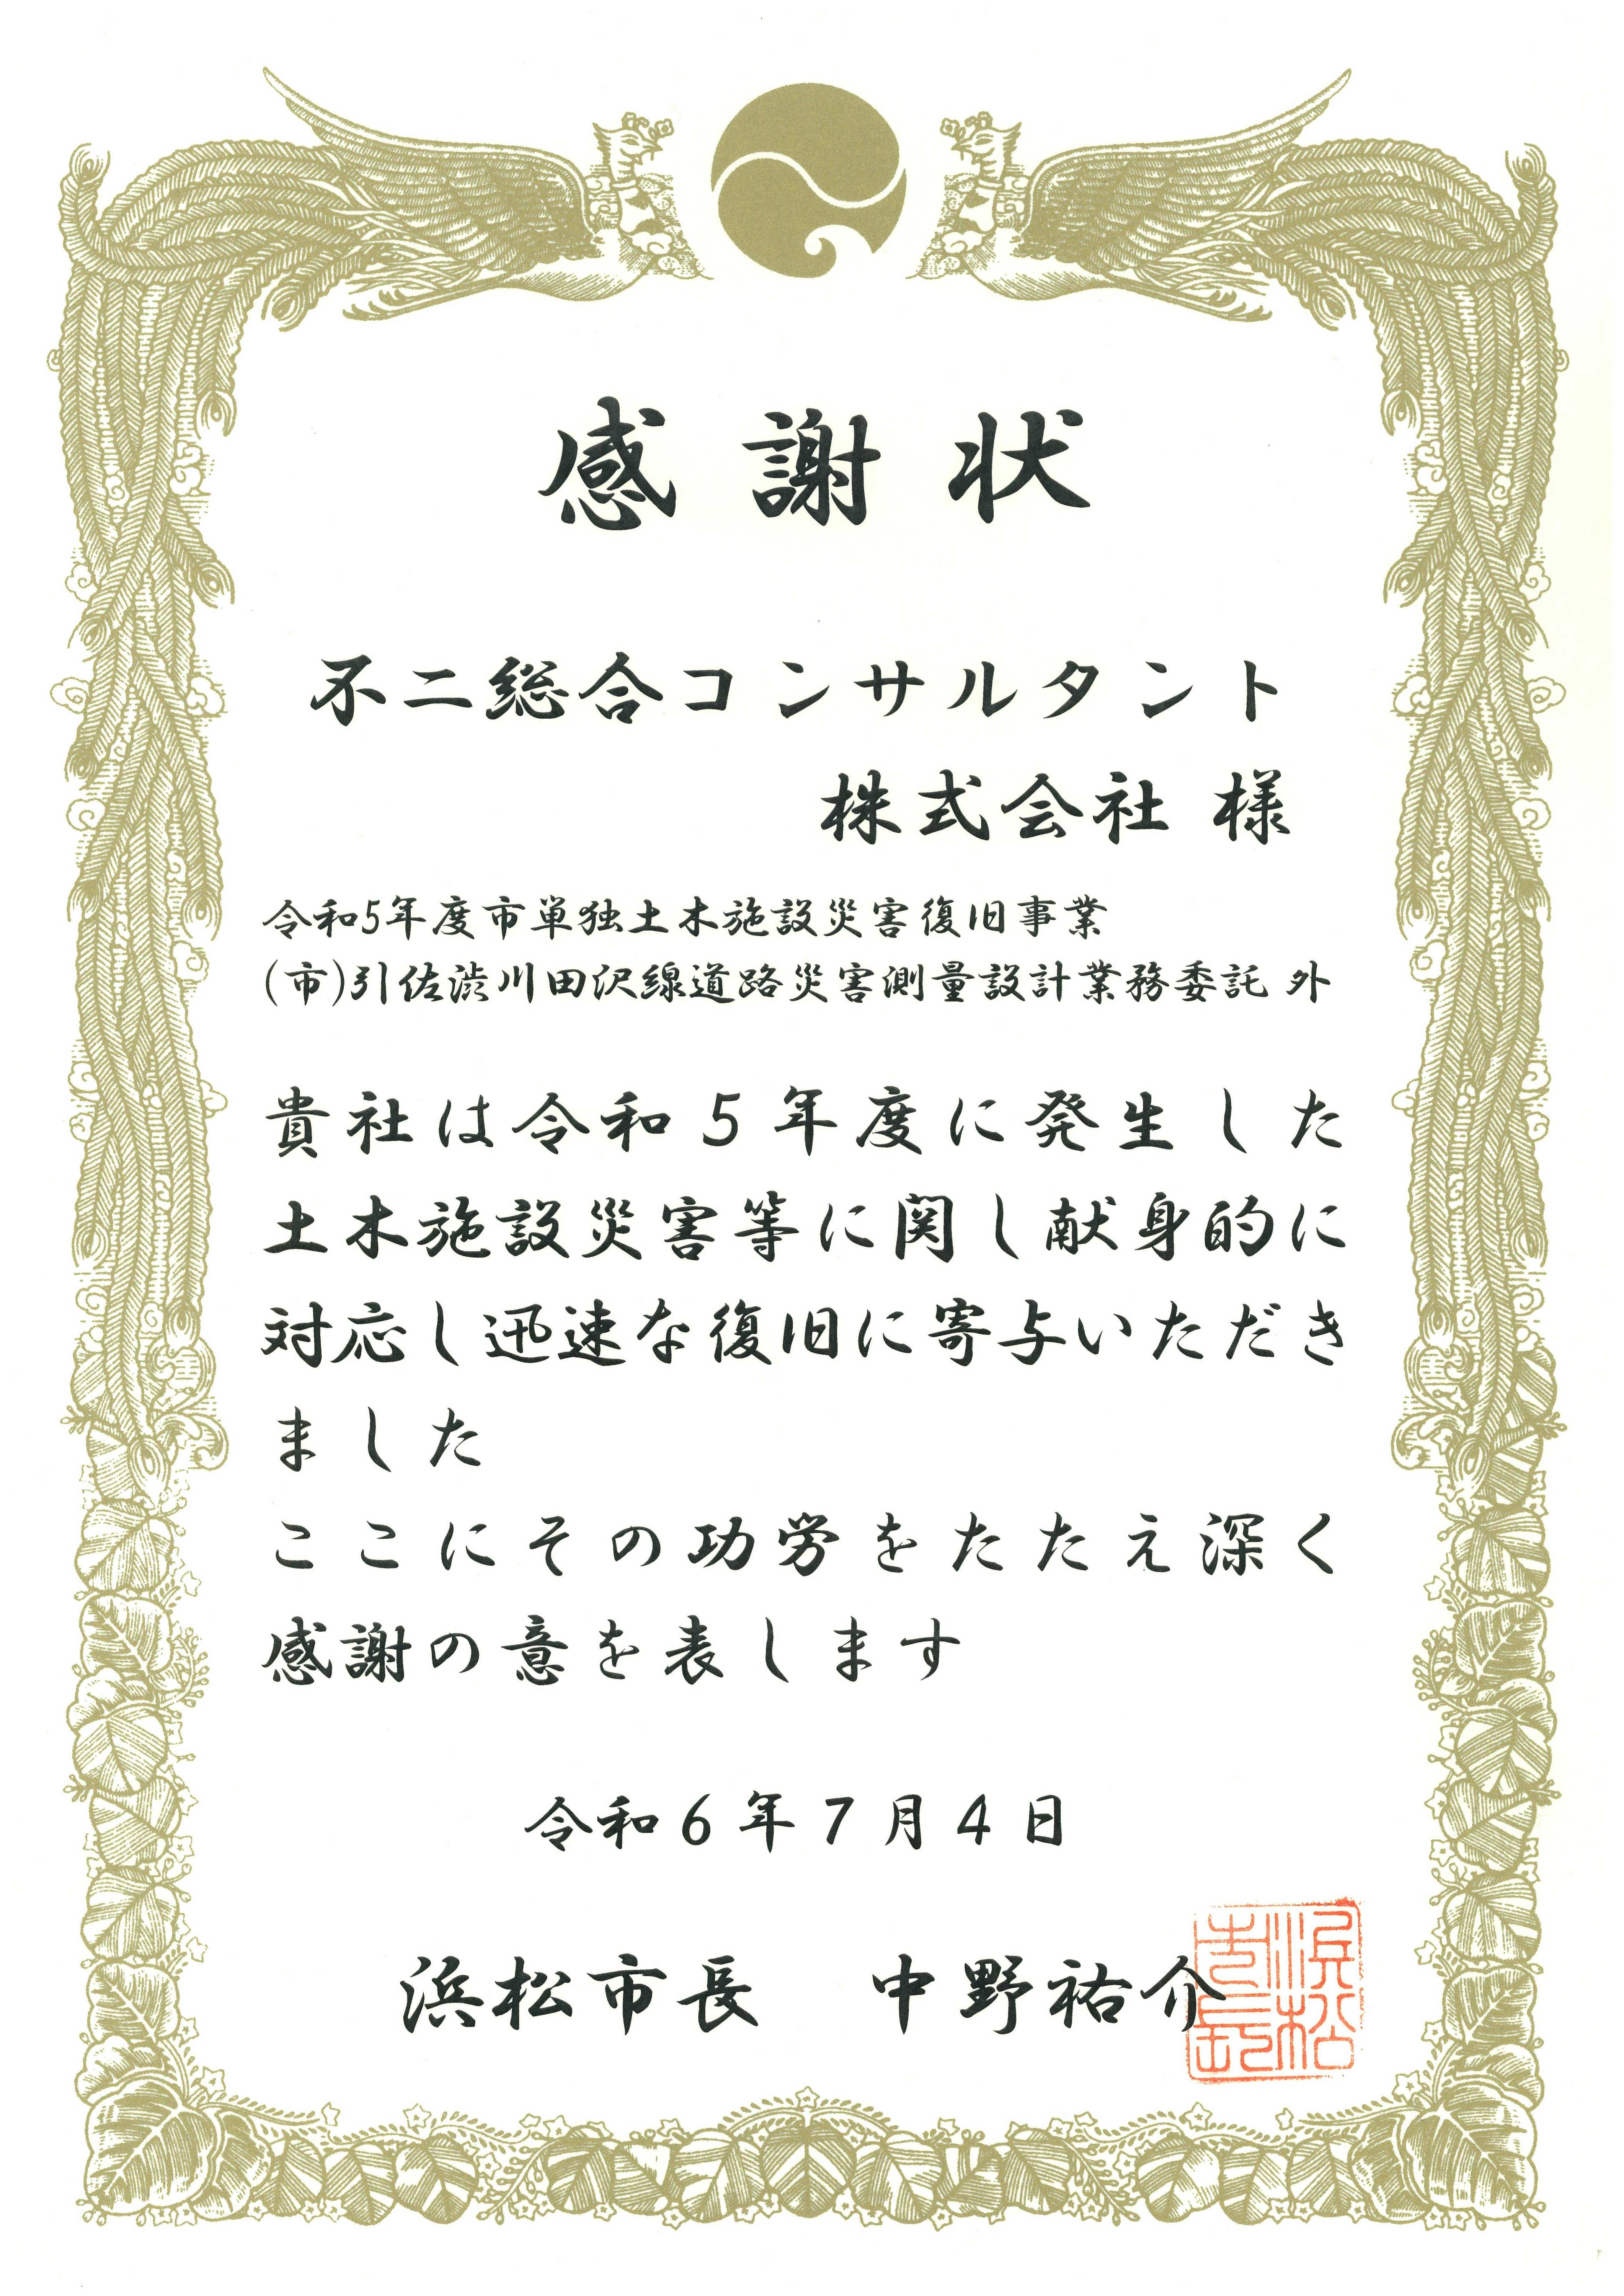 感謝状
不二総合コンサルタント
株式会社 様
令和5年度市単独土木施設災害復旧事業
(市)引佐渋川田沢線道路災害測量設計業務委託 外
貴社は令和5年度に発生した
土木施設災害等に関し献身的に
対応し迅速な復旧に寄与いただき
ました
ここにその功労をたたえ深く
感謝の意を表します
令和6年7月4日
浜松市長 中野祐介
浜松
市長